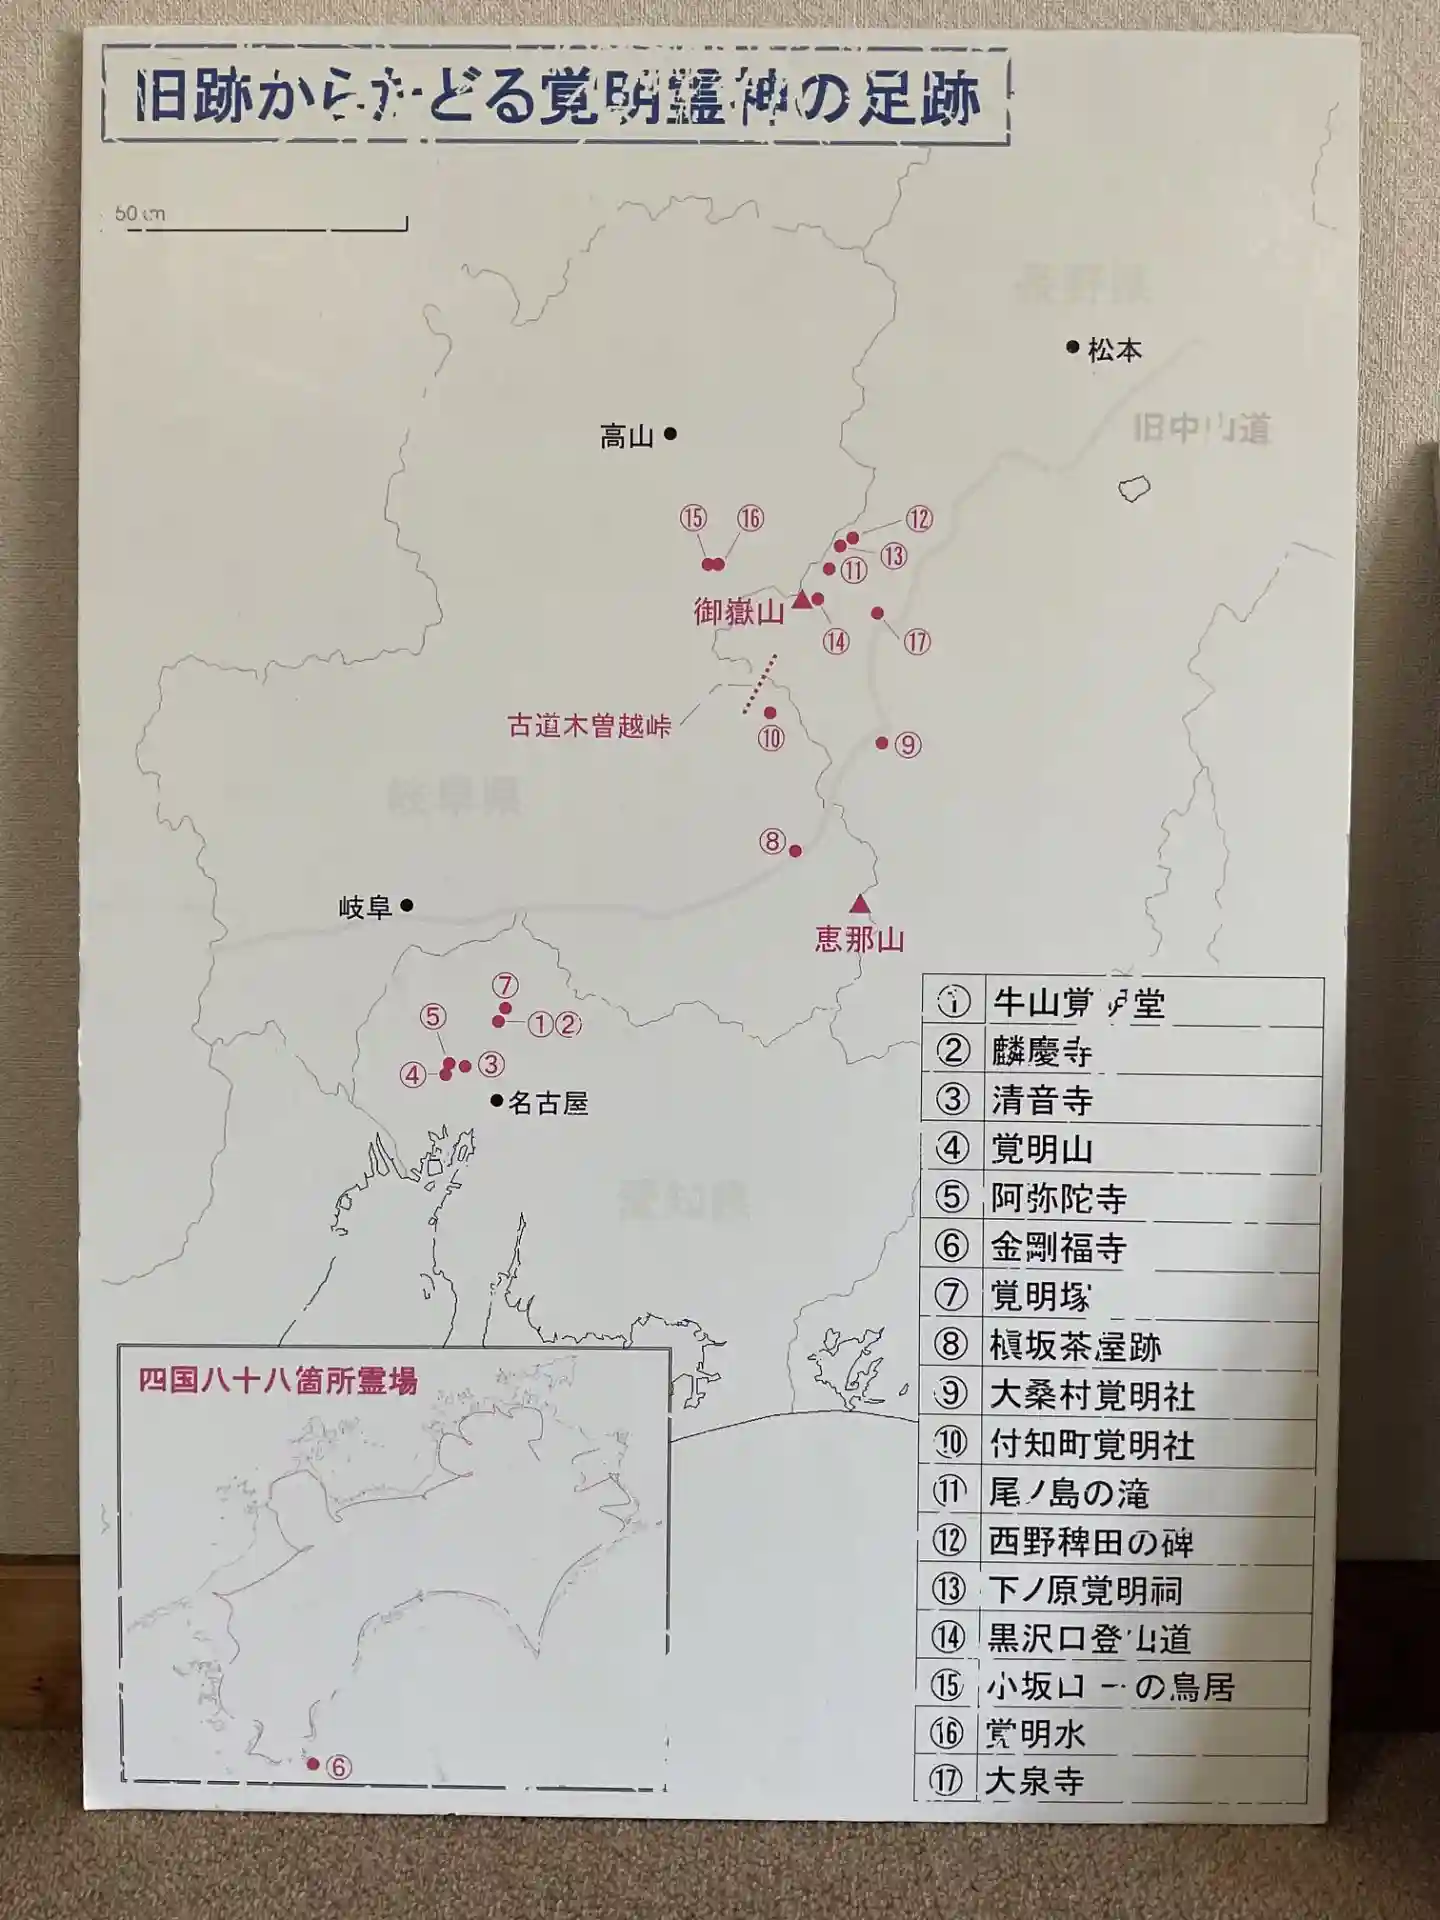 旧跡からたどる覚明霊神の足跡
50km
長野県
松本
旧中山道
高山
⑮
⑯
⑫
⑬
⑪
御嶽山
⑭
⑰
古道木曽越峠
⑩
⑨
岐阜県
⑧
岐阜
恵那山
⑦
⑤
①②
④
③
名古屋
愛知県
① 牛山覚明堂
② 麟慶寺
③ 清音寺
④ 覚明山
⑤ 阿弥陀寺
⑥ 金剛福寺
⑦ 覚明塚
⑧ 槇坂茶屋跡
⑨ 大桑村覚明社
⑩ 付知町覚明社
⑪ 尾ノ島の滝
⑫ 西野稗田の碑
⑬ 下ノ原覚明祠
⑭ 黒沢口登山道
⑮ 小坂口 の鳥居
⑯ 覚明水
⑰ 大泉寺
四国八十八箇所霊場
⑥